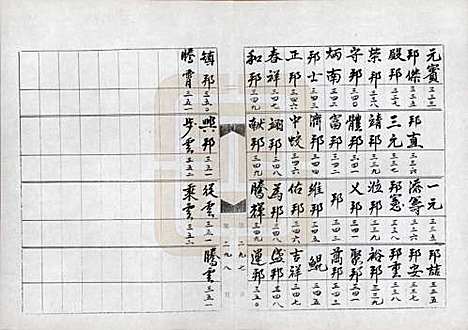 元賓 一元 三三五 邦誌 三三五
邦傑 三三五 邦直 三三六 添籌 三三六 邦安 三三七
殿邦 三三七 三元 三三七 邦憲 三三八 邦重 三三八
榮邦 靖邦 三三九 邦 三三九 裕邦 三三九
守邦 三四〇 體邦 三四〇 乂邦 三四一 聚邦 三四一
炳南 富邦 邦 萬邦 三四四
邦士 濟邦 維邦 三四五 鯤 三四五
正邦 三四六 中蛟 三四六 佑邦 三四六 吉祥 三四六
春祥 三四七 翊邦 三四八 為邦 三四八 盛邦 三四八
和邦 三四九 獻邦 三四九 騰輝 三四九 運邦 三五〇
二九七
二九八
鎮邦 三五〇 邦 三五一 從雲 三五一 騰雲 三五一
騰霄 三五一 步雲 三五二 乘雲 三五二